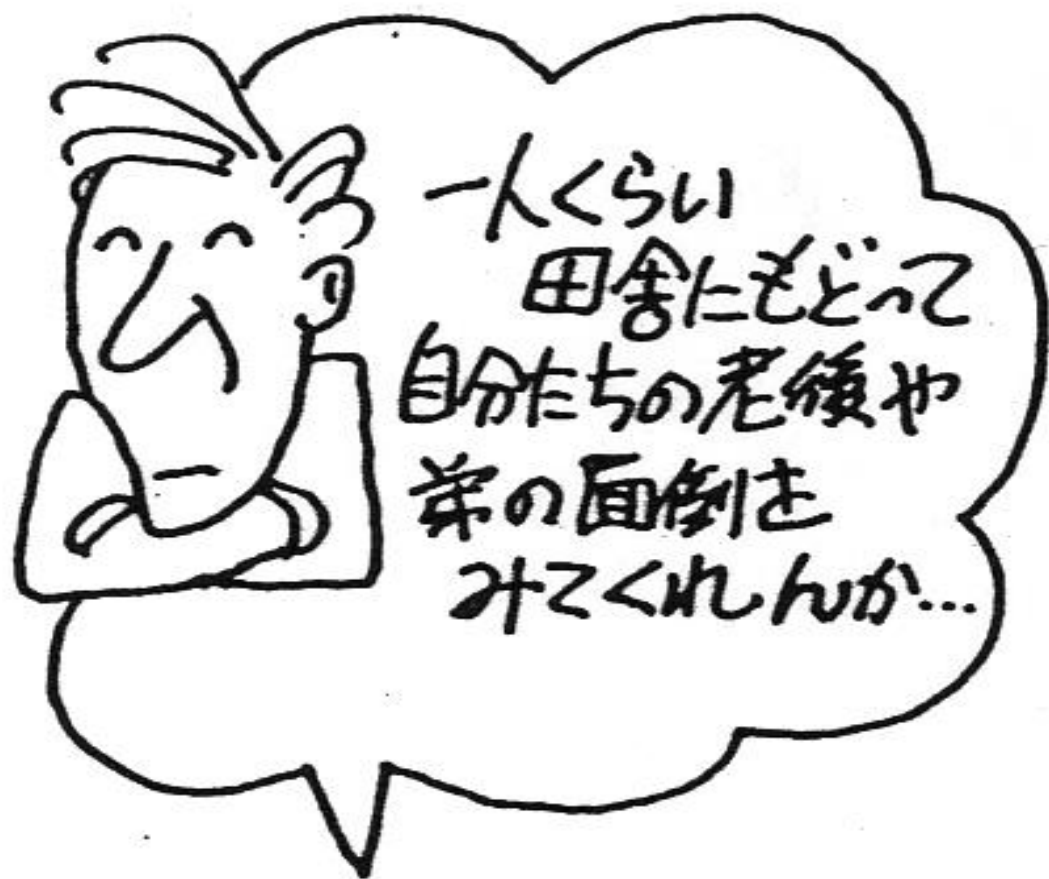 一人くらい
田舎にもどって
自分たちの老後や
弟の面倒を
みてくれんか…